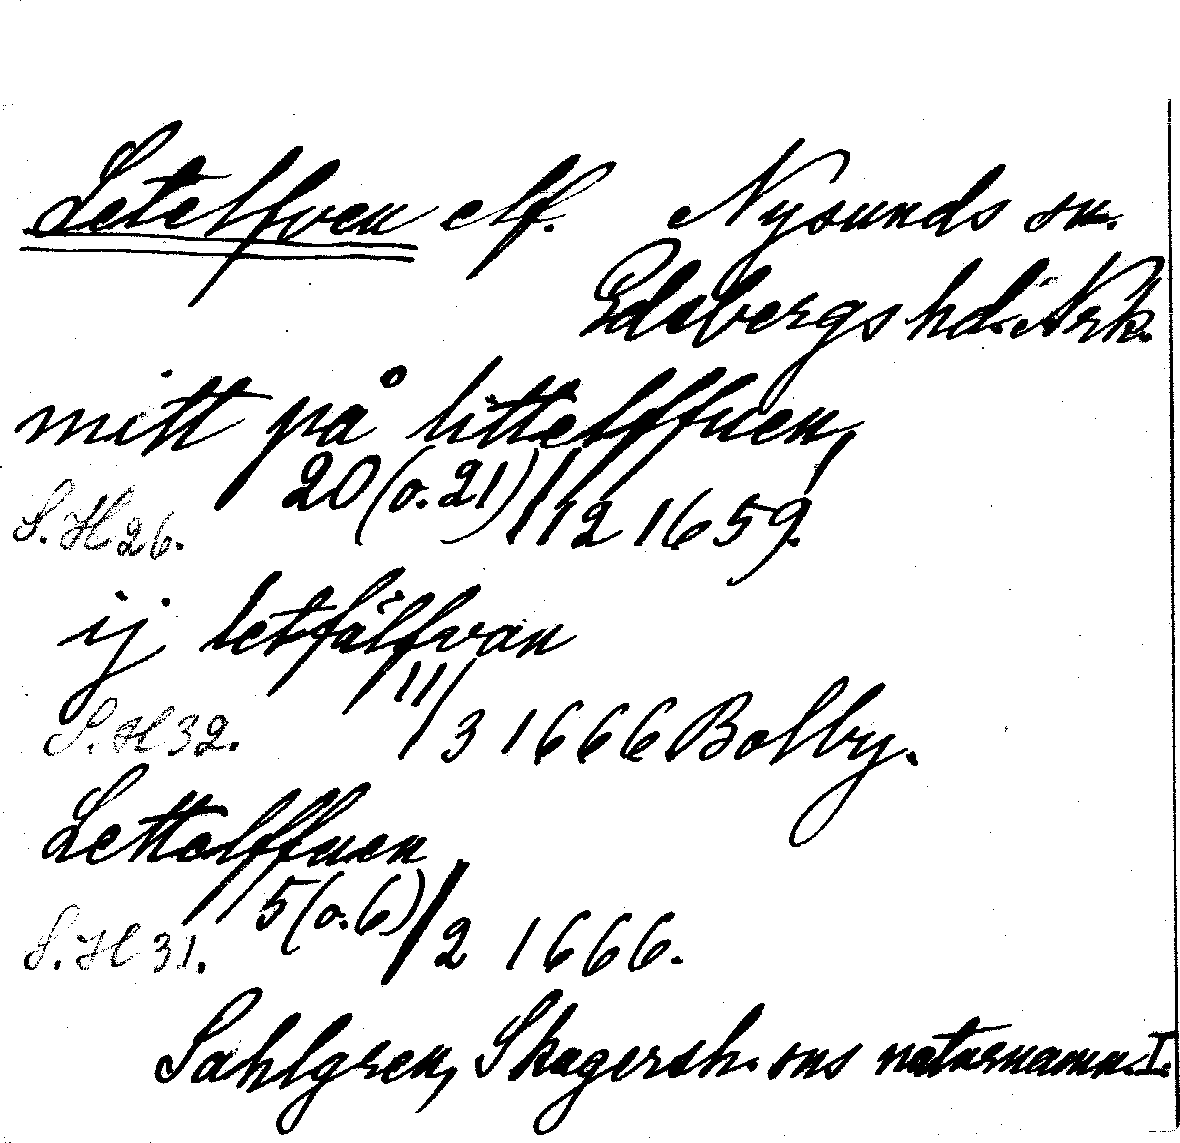 Letelfven elf. Nysunds sn.
Edsbergs hd. Nrk.
mitt på littelffuen,
20 (o. 21)/12 1659.
S. H 26.
ij letfälfvan
11/3 1666 Bolby.
S. H 32.
Lettolffuen
5 (o. 6)/2 1666.
S. H 31.
Sahlgren, Skagersh. sns naturnamn I.